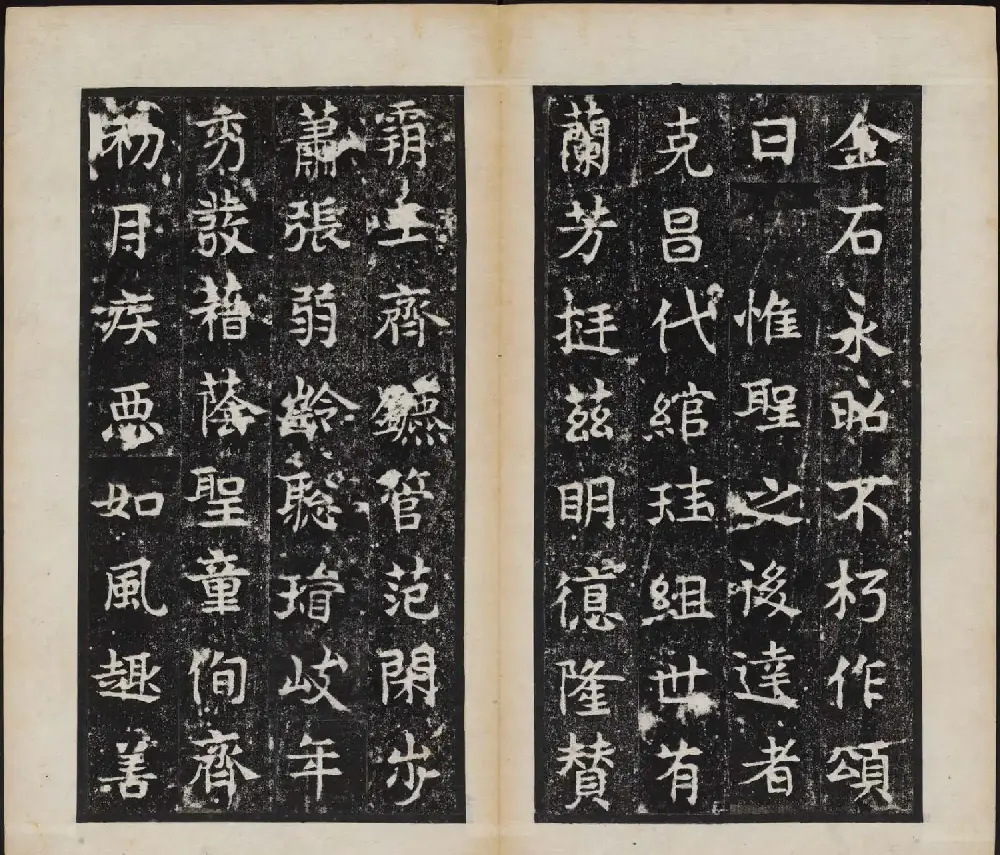 金石永昭不朽作頌
曰惟聖之後達者
克昌代綰珪組世有
蘭芳挺茲明德隆賛
霸王齊鑣管范閑步
蕭張弱齡聦岐年
秀發藉蔭聖童侚齊
初月疾悪如風趣善